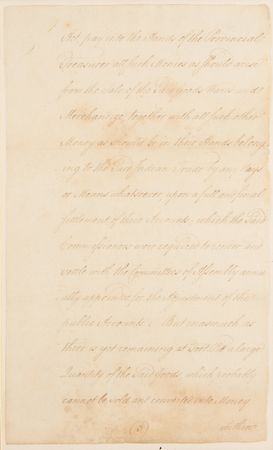 Act pay into the Hands of the Provincial
Treasurer all such Monies as should arise
from the Sale of the said goods Wares and
Merchandize, together with all such other
Money as should be in their Hands belong
ing to the said Indian Trade by any Ways
or Means whatsoever, upon a full and final
Settlement of their Accounts, which the said
Commissioners were required to render and
settle with the Committees of Assembly annu
ally appointed for the Adjustment of the
public Accounts. But inasmuch as
there is yet remaining at Fort Pitt a large
Quantity of the said Goods which probably
cannot be sold and converted into Money
within